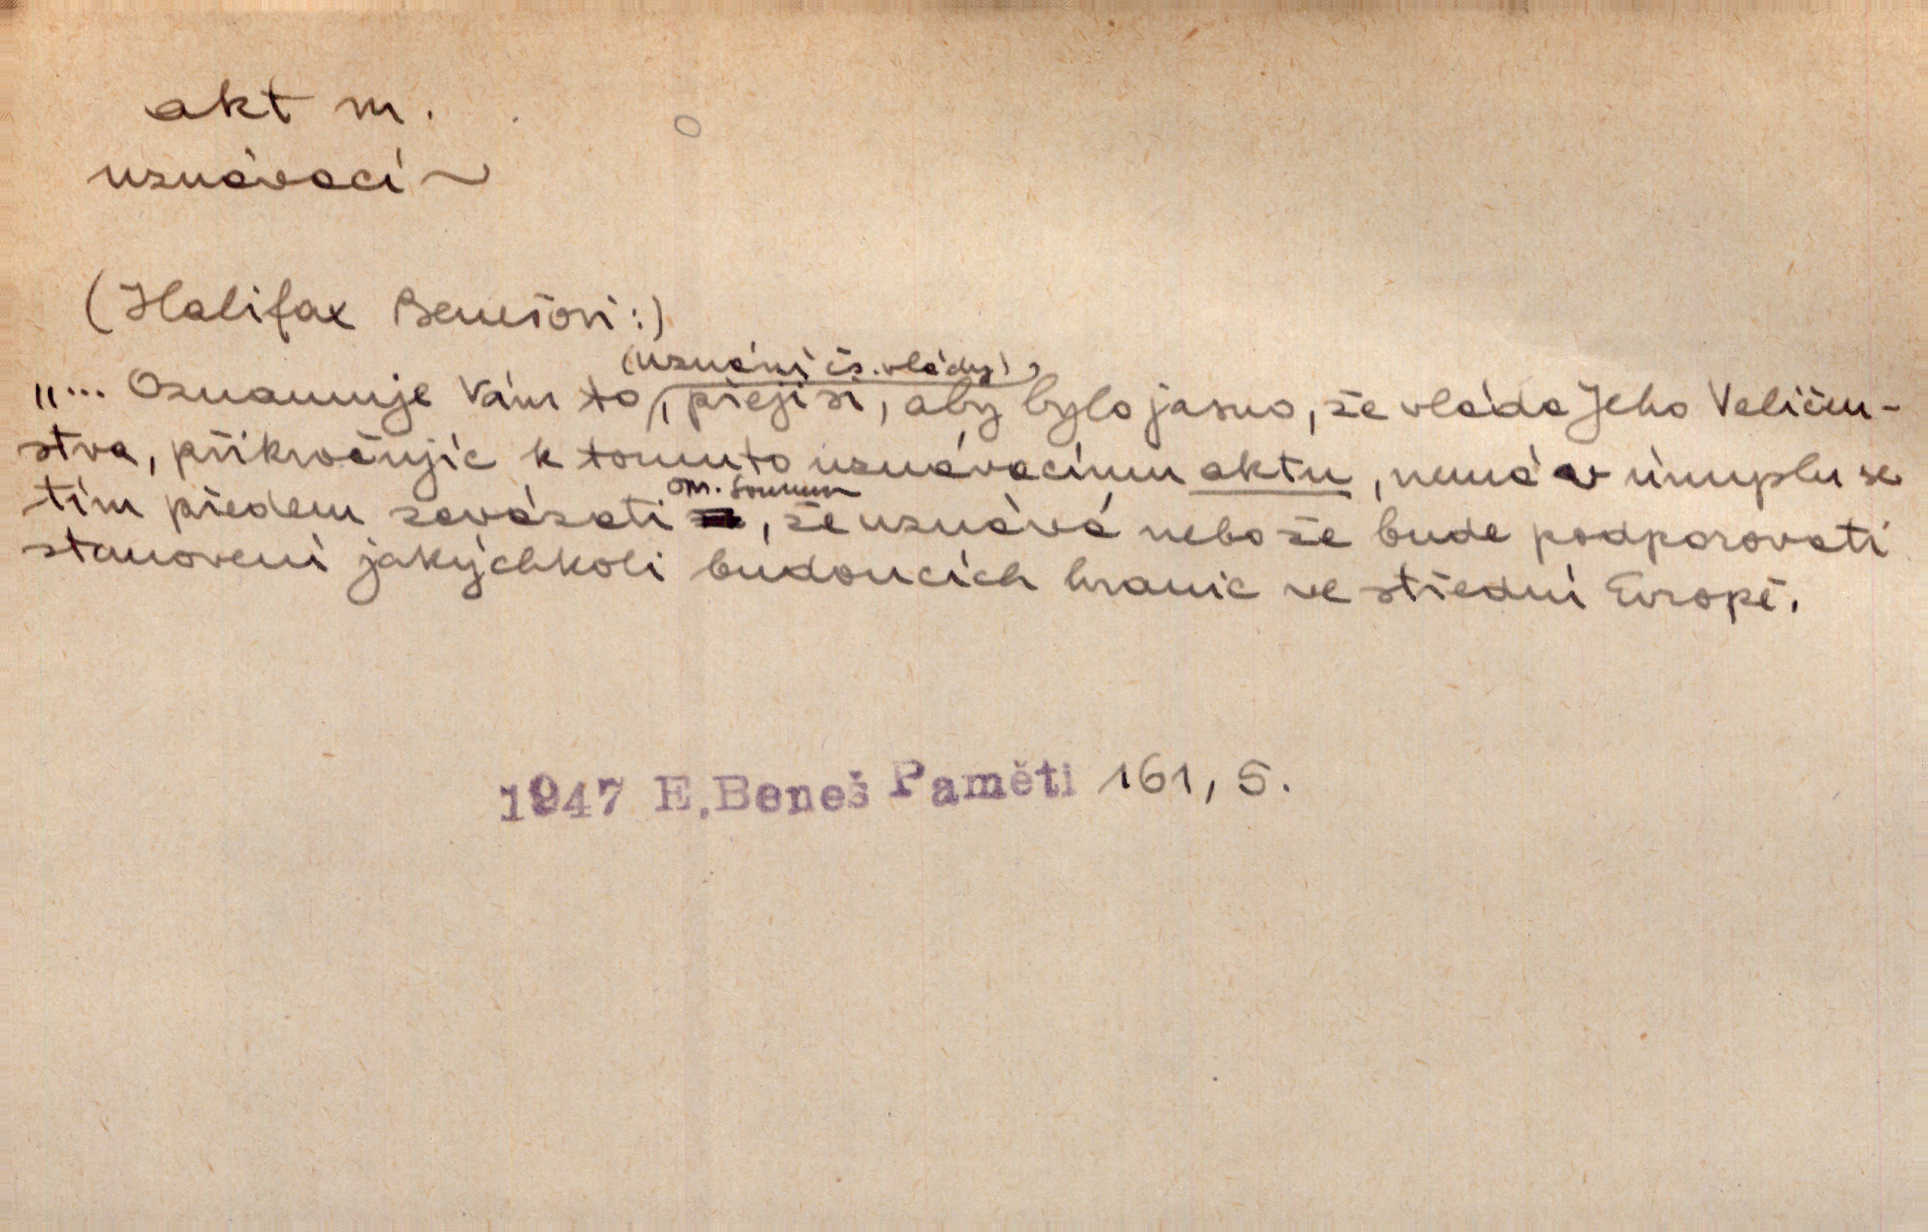 akt m.
uznávací ~
(Halifax Benešovi:)
(uznání čs. vlády)
„... Oznamuje Vám to, přeji si, aby bylo jasno, že vláda Jeho Veličen-
stva, přikročujíc k tomuto uznávacímu aktu, nemá v úmyslu se
om.
tím předem zavázati, že uznává nebo že bude podporovati
stanovení jakýchkoli budoucích hranic ve střední Evropě.
1947 E. Beneš Paměti 161, 5.